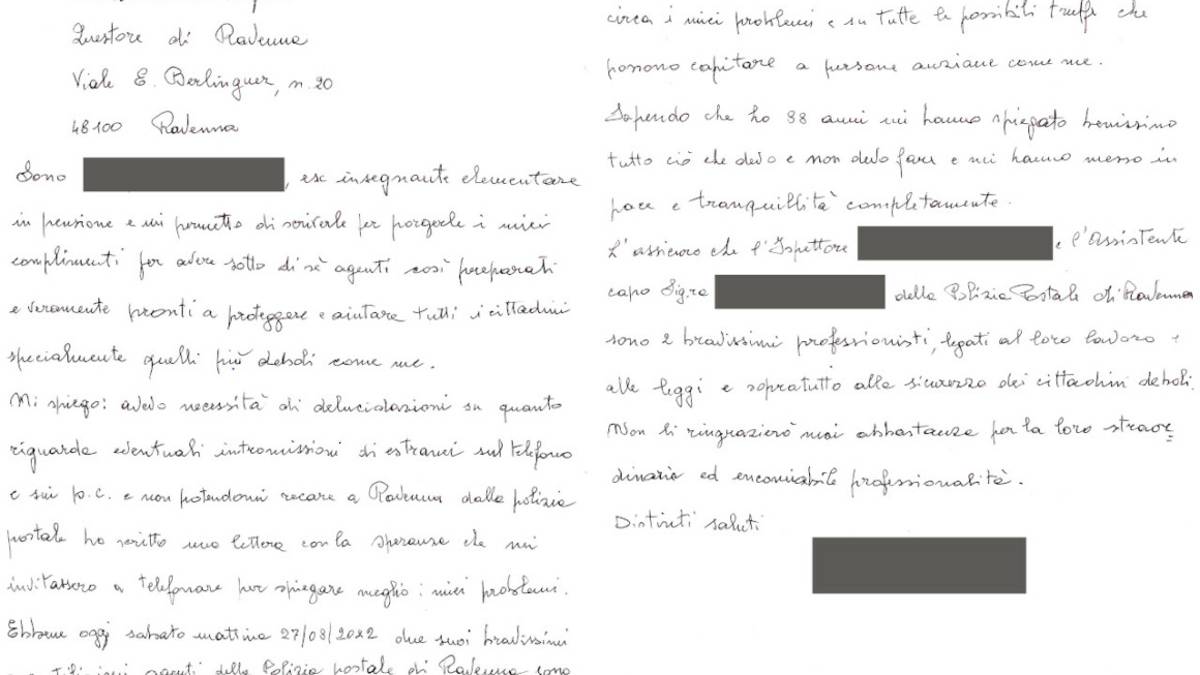 Questore di Ravenna
Viale E. Berlinguer, n. 20
48100 Ravenna
Sono , esc insegnante elementare
in pensione e mi permetto di scriverle per porgerle i miei
complimenti per avere sotto di sè agenti così preparati
e veramente pronti a proteggere e aiutare tutti i cittadini
specialmente quelli più deboli come me.
Mi spiego: avevo necessità di delucidazioni su quanto
riguarda eventuali intromissioni di estranei sul telefono
e sui p.c. e non potendomi recare a Ravenna dalla polizia
postale ho scritto una lettera con la speranza che mi
invitassero a telefonare per spiegare meglio i miei problemi.
Ebbene oggi sabato mattina 27/08/2022 due suoi bravissimi
agenti della Polizia postale di Ravenna sono
circa i miei problemi e su tutte le possibili truffe che
possono capitare a persone anziane come me.
Sapendo che ho 88 anni mi hanno spiegato benissimo
tutto ciò che devo e non devo fare e mi hanno messo in
pace e tranquillità completamente.
L'assicuro che l'Ispettore e l'Assistente
capo Sig.ra della Polizia Postale di Ravenna
sono 2 bravissimi professionisti, legati al loro lavoro e
alle leggi e sopratutto alla sicurezza dei cittadini deboli.
Non li ringrazierò mai abbastanza per la loro straor
dinaria ed encomiabile professionalità.
Distinti saluti